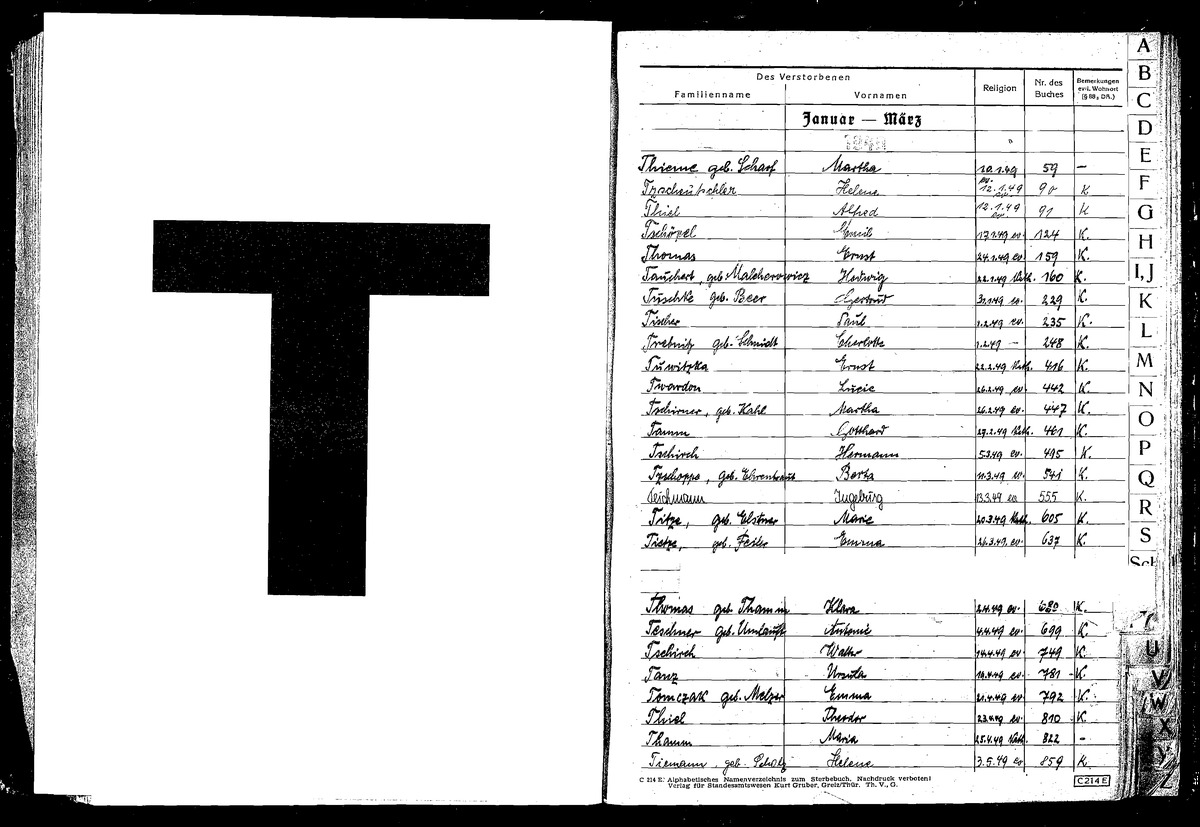 T
Des Verstorbenen
Familienname Vornamen Religion Nr. des Buches Bemerkungen evtl. Wohnort (§ 88, DA.)
Januar — März
1949
Thieme geb. Scharf Martha 10.1.49 59 —
Tzscheutschler Helene ev. 12.1.49 90 K
Thiel Alfred 12.1.49 ev. 91 K
Tschöpel Emil 17.1.49 ev. 124 K.
Thomas Ernst 24.1.49 ev. 159 K.
Tauchert, geb. Malcherowicz Hedwig 22.1.49 Kath. 160 K.
Tuschke geb. Beer Gertrud 31.1.49 ev. 229 K.
Tischer Paul 1.2.49 ev. 235 K.
Trebnitz geb. Schmidt Charlotte 1.2.49 — 248 K.
Tuwitzka Ernst 22.2.49 Kath. 416 K.
Twardon Lucie 26.2.49 ev. 442 K.
Tschirner, geb. Kahl Martha 26.2.49 ev. 447 K.
Tamm Gotthard 27.2.49 Kath. 461 K.
Tschirch Hermann 5.3.49 ev. 495 K.
Tzschoppe, geb. Ehrentraut Berta 11.3.49 ev. 541 K.
Teichmann Ingeburg 13.3.49 ev. 555 K.
Titze, geb. Elstner Marie 20.3.49 Kath. 605 K.
Tietze, geb. Emma 26.3.49. ev. 637 K.
Thomas geb. Thamm Klara 2.4.49 ev. 680 K.
Teschner geb. Umlauft Antonie 4.4.49 ev. 699 K.
Tschirch Walter 14.4.49 ev. 749 K.
Tanz Ursula 19.4.49 ev. 781 K.
Tomczak geb. Melzer Emma 21.4.49 ev. 792 K.
Thiel Theodor 23.4.49 ev. 810 K.
Thamm Maria 25.4.49 Kath. 822 -
Tiemann, geb. Scholz Helene 3.5.49 ev 859 K.
C 214 E: Alphabetisches Namenverzeichnis zum Sterbebuch. Nachdruck verboten!
Verlag für Standesamtswesen Kurt Gruber, Greiz/Thür. Th. V., G.
C 214 E
A
B
C
D
E
F
G
H
I, J
K
L
M
N
O
P
Q
R
S
Sch
T
U
V
W
X
Y
Z